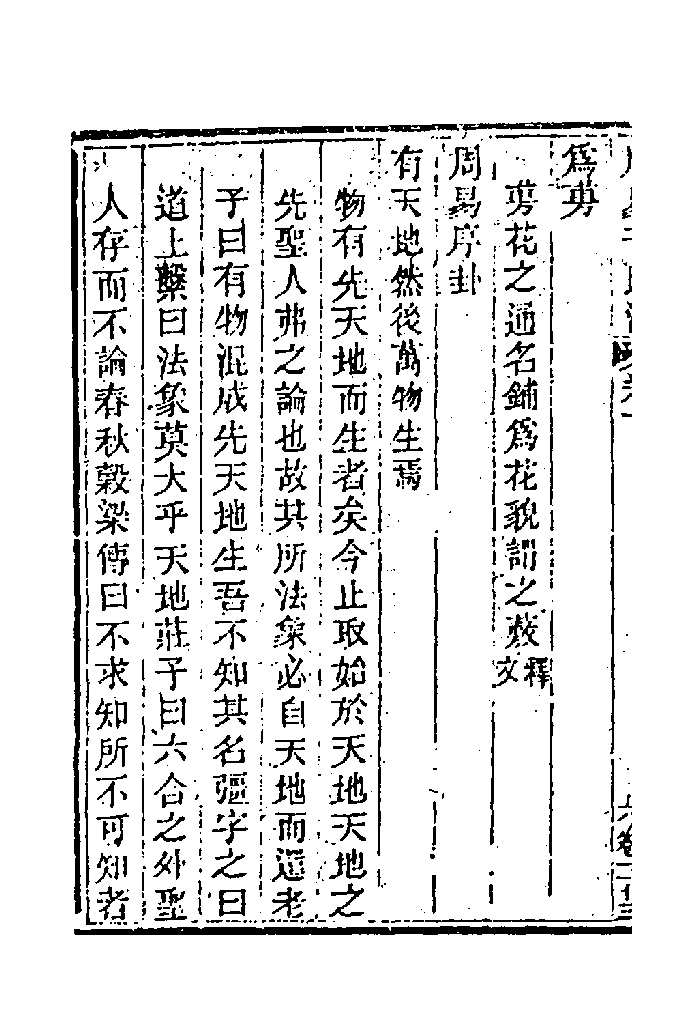 為旉
旉花之通名鋪為花貌謂之藪釋文
周易序卦
有天地然後萬物生焉
物有先天地而生者矣今止取始於天地天地之
先聖人弗之論也故其所法象必自天地而還老
子曰有物混成先天地生吾不知其名彊字之曰
道上繫曰法象莫大乎天地莊子曰六合之外聖
人存而不論春秋穀梁傳曰不求知所不可知者